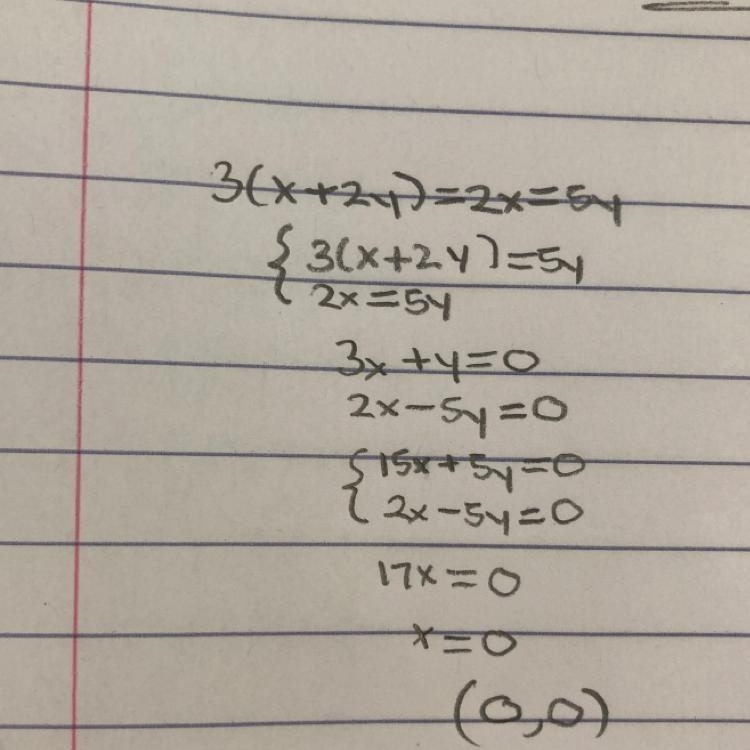 3(x+2y)=2x=5y
{ 3(x+2y)=5y
2x=5y
3x+y=0
2x-5y=0
{ 15x+5y=0
2x-5y=0
17x=0
x=0
(0,0)